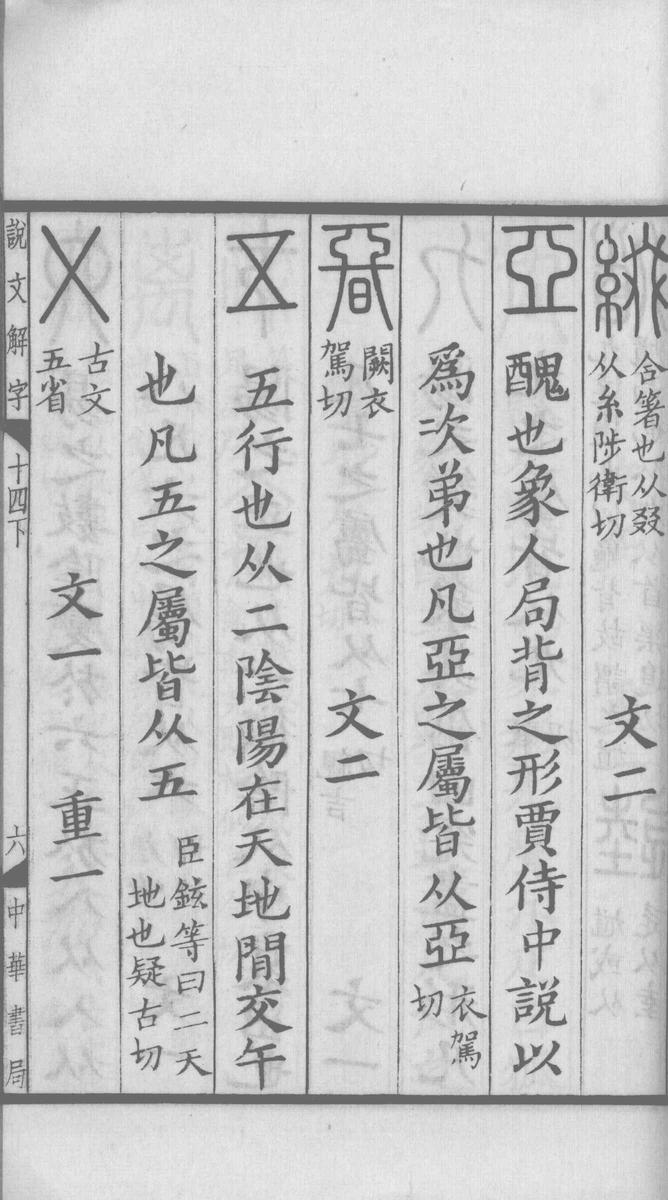 綴 合箸也从叕
从糸陟衛切 文二
亞 醜也象人局背之形賈侍中說以
爲次弟也凡亞之屬皆从亞 衣駕
切
𣈏 闕衣
駕切 文二
五 五行也从二陰陽在天地閒交午
也凡五之屬皆从五 臣鉉等曰二天
地也疑古切
㐅 古文
五省 文一 重一
說文解字 十四下 六 中華書局